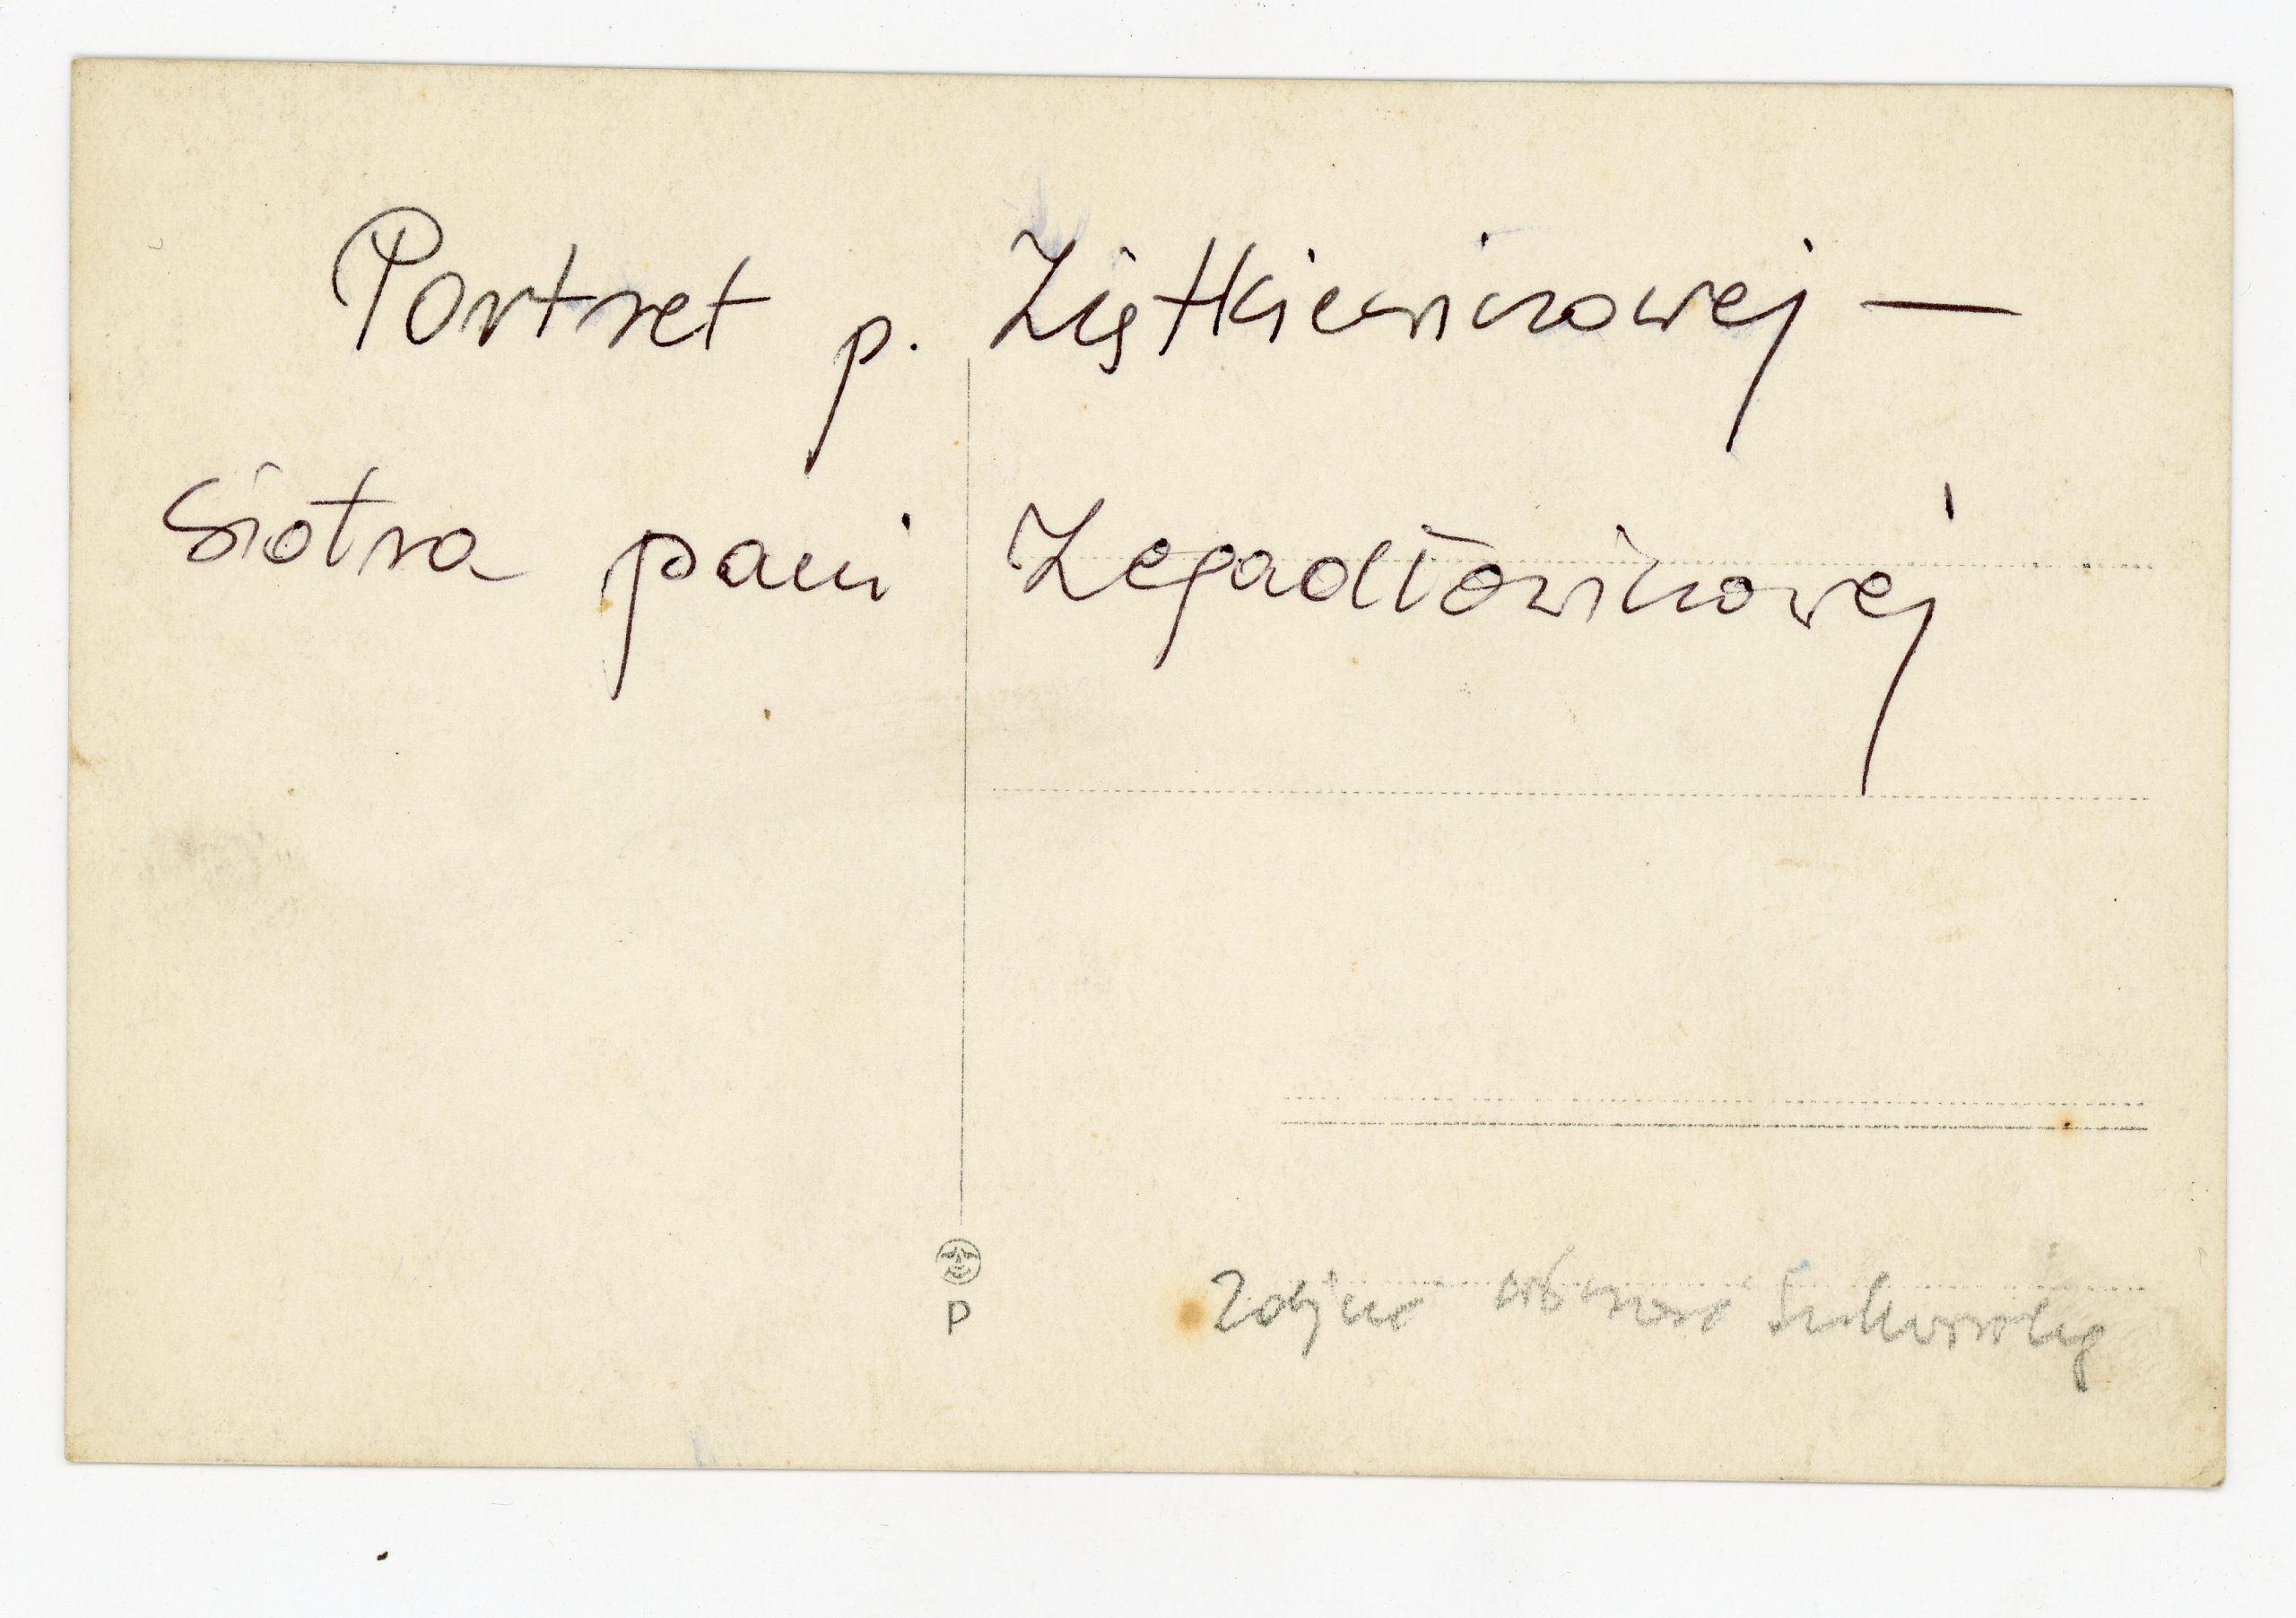 Portret p. Ziętkiewiczowej —
Siotra pani Zegadłowiczowej
P
Zdjęcie